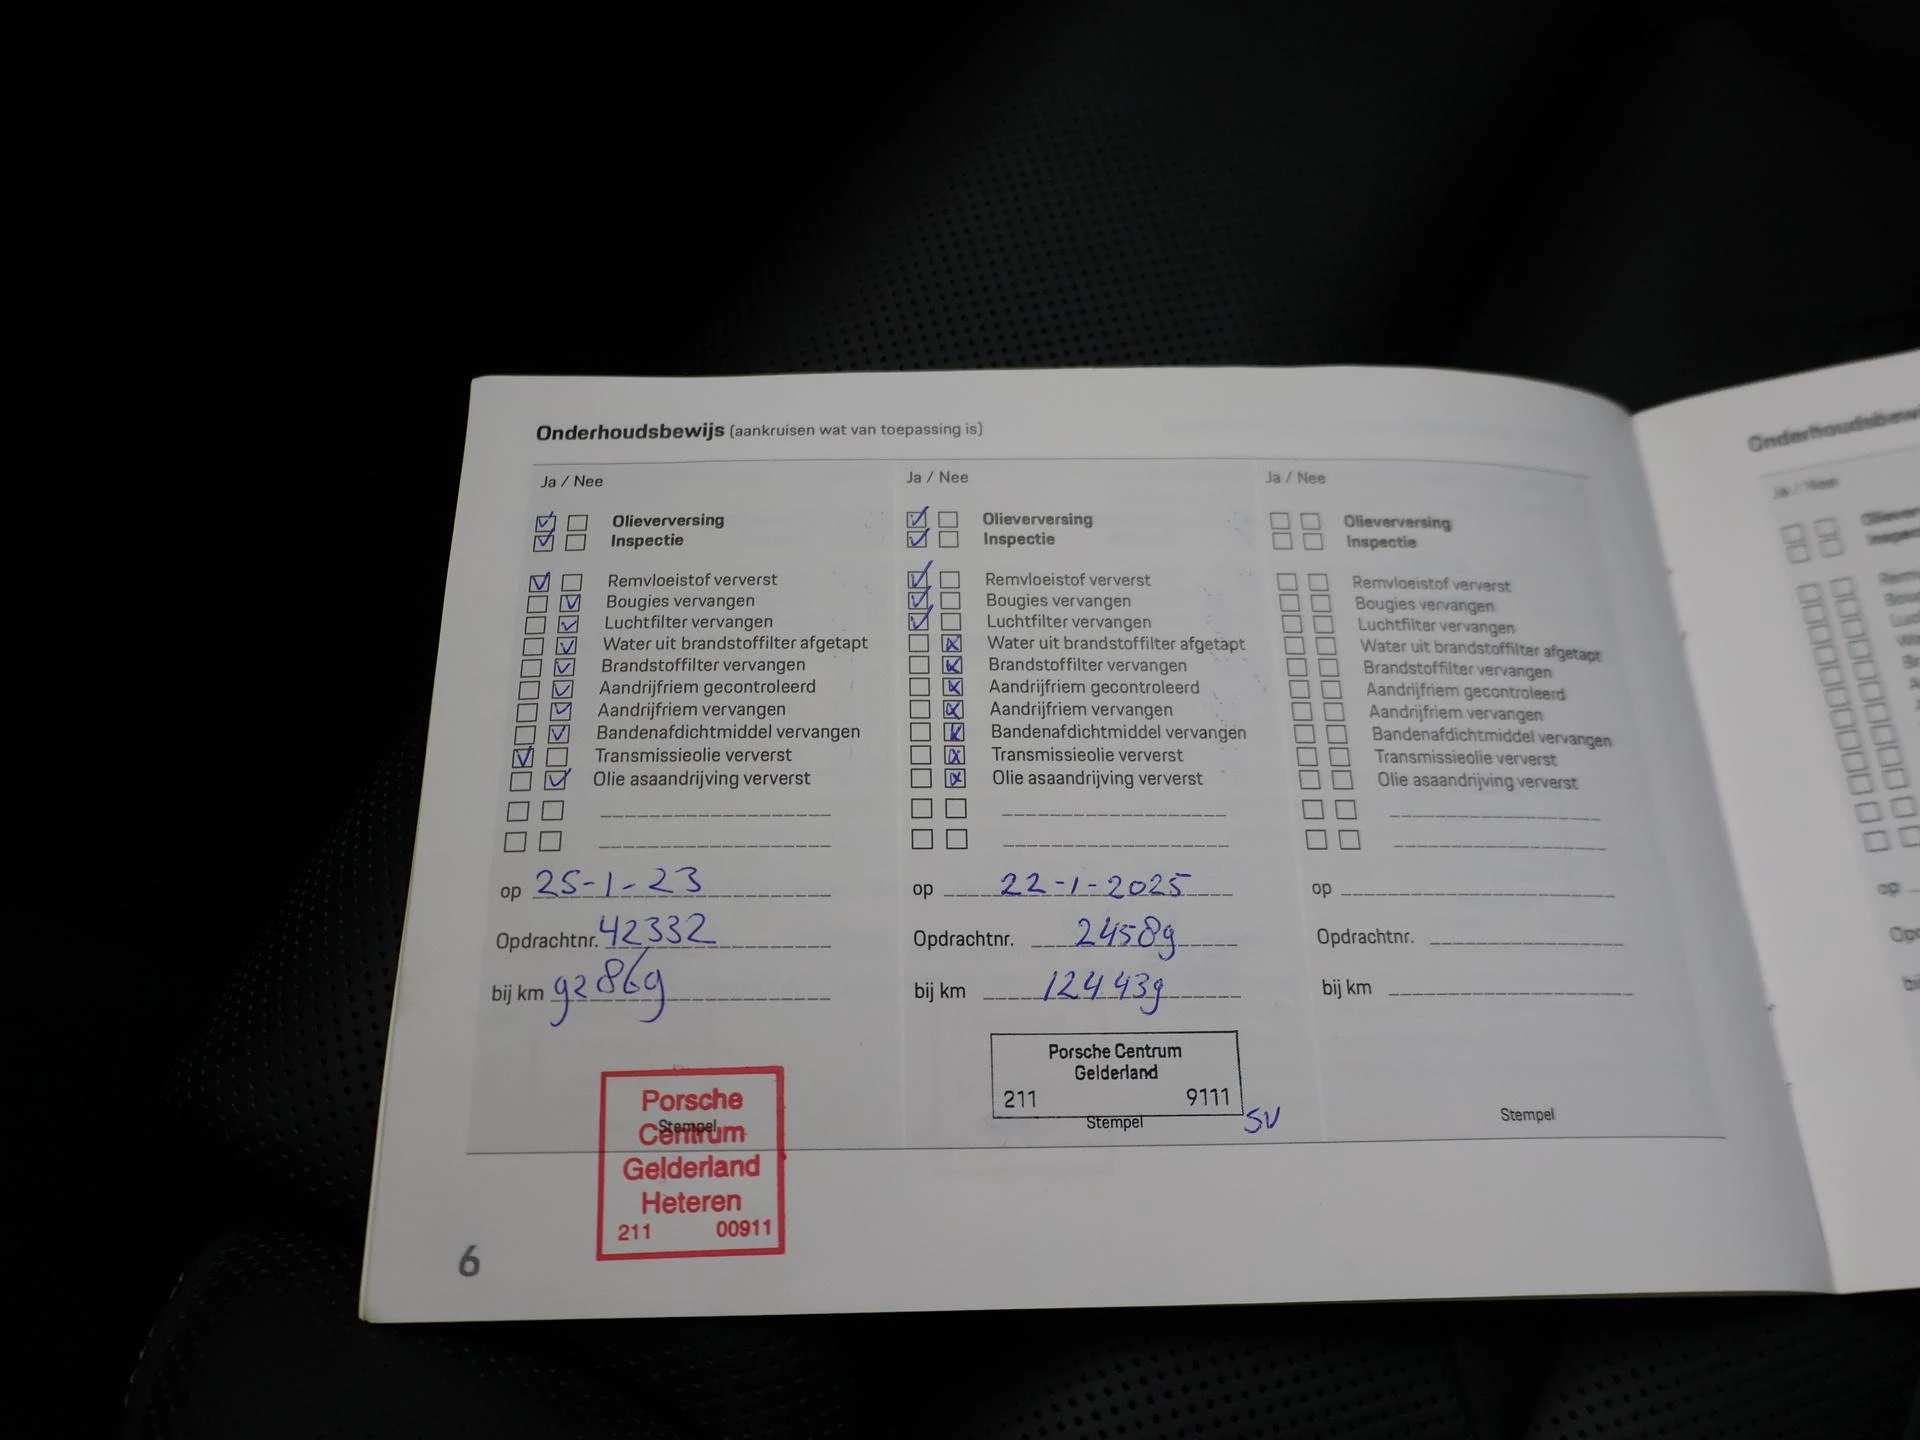 Onderhoudsbewijs (aankruisen wat van toepassing is)
Ja / Nee
Olieverversing
Inspectie
Remvloeistof ververst
Bougies vervangen
Luchtfilter vervangen
Water uit brandstoffilter afgetapt
Brandstoffilter vervangen
Aandrijfriem gecontroleerd
Aandrijfriem vervangen
Bandenafdichtmiddel vervangen
Transmissieolie ververst
Olie asaandrijving ververst
op 25-1-23
Opdrachtnr. 42332
bij km 92869
Stempel
Porsche
Centrum
Gelderland
Heteren
211 00911
6
Ja / Nee
Olieverversing
Inspectie
Remvloeistof ververst
Bougies vervangen
Luchtfilter vervangen
Water uit brandstoffilter afgetapt
Brandstoffilter vervangen
Aandrijfriem gecontroleerd
Aandrijfriem vervangen
Bandenafdichtmiddel vervangen
Transmissieolie ververst
Olie asaandrijving ververst
op 22-1-2025
Opdrachtnr. 24589
bij km 124439
Porsche Centrum
Gelderland
211 9111
Stempel
SV
Ja / Nee
Olieverversing
Inspectie
Remvloeistof ververst
Bougies vervangen
Luchtfilter vervangen
Water uit brandstoffilter afgetapt
Brandstoffilter vervangen
Aandrijfriem gecontroleerd
Aandrijfriem vervangen
Bandenafdichtmiddel vervangen
Transmissieolie ververst
Olie asaandrijving ververst
op
Opdrachtnr.
bij km
Stempel
Ja / Nee
op